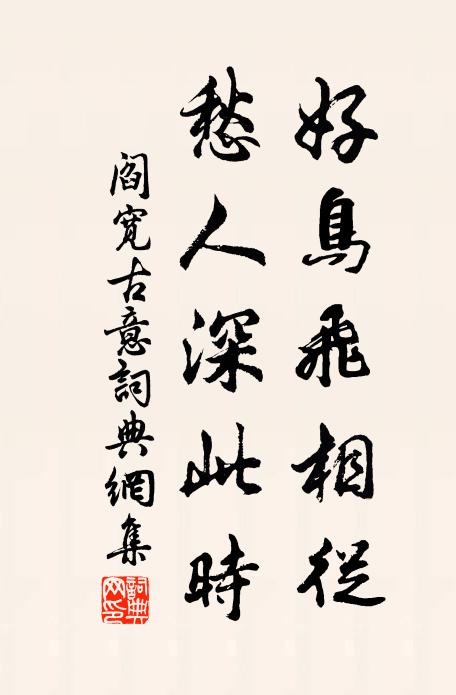 好鳥飛相從
愁人深此時
閻寬古意詞典網集
詞典網印